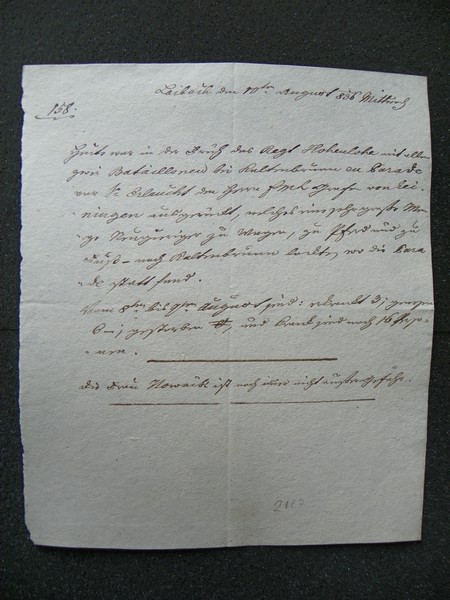 Laibach den 10ten August 836 Mittwoch
158.
Heute war in der Früh das Regt Hohenlohe mit allen
zwei Bataillonen bei Kaltenbrunn en Parade
vor Sr Erlaucht dem Herrn FML Grafen von Lei-
ningen ausgerückt, welches eine sehr große Men-
ge Neugieriger zu Wagen, zu Pferd und zu
Fuß – nach Kaltenbrunn lockte, wo die Para-
de statt fand.
Vom 8ten bis 9ten August sind: erkrankt 3; genesen
6–; gestorben, und krank sind noch 16 Perso-
nen.
Die Frau Nowack ist noch immer nicht außer Gefahr.
2117